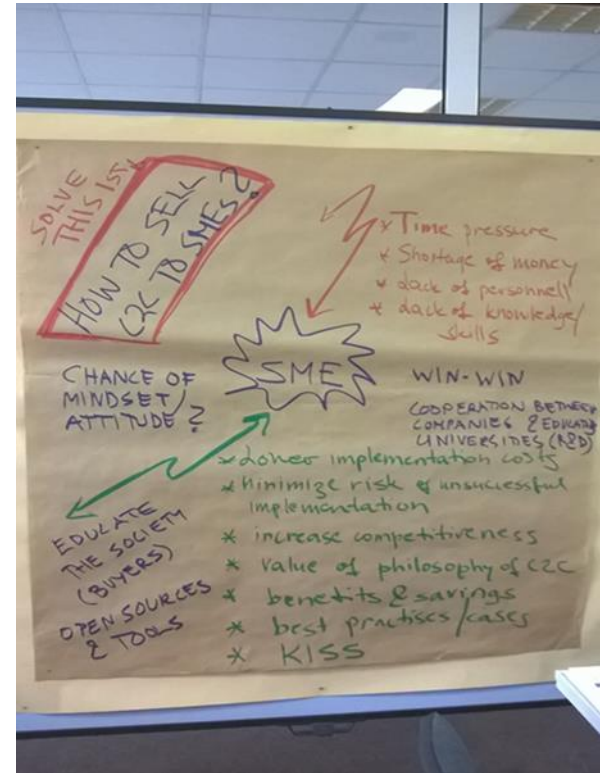 SOLVE
THIS 1st
HOW TO SELL
C2C TO SMES?
* Time pressure
* Shortage of money
* Lack of personnell
* Lack of knowledge/
skills
SME
CHANCE OF
MINDSET/
ATTITUDE?
WIN-WIN
COOPERATION BETWEEN
COMPANIES & EDUCATION
UNIVERSIDES (R&D)
* Lower implementation costs
* Minimize risk of unsuccessful
implementation
* increase competitiveness
* Value of philosophy of C2C
* benefits & savings
* best practises/cases
* KISS
EDUCATE
THE SOCIETY
(BUYERS)
OPEN SOURCES
& TOOLS